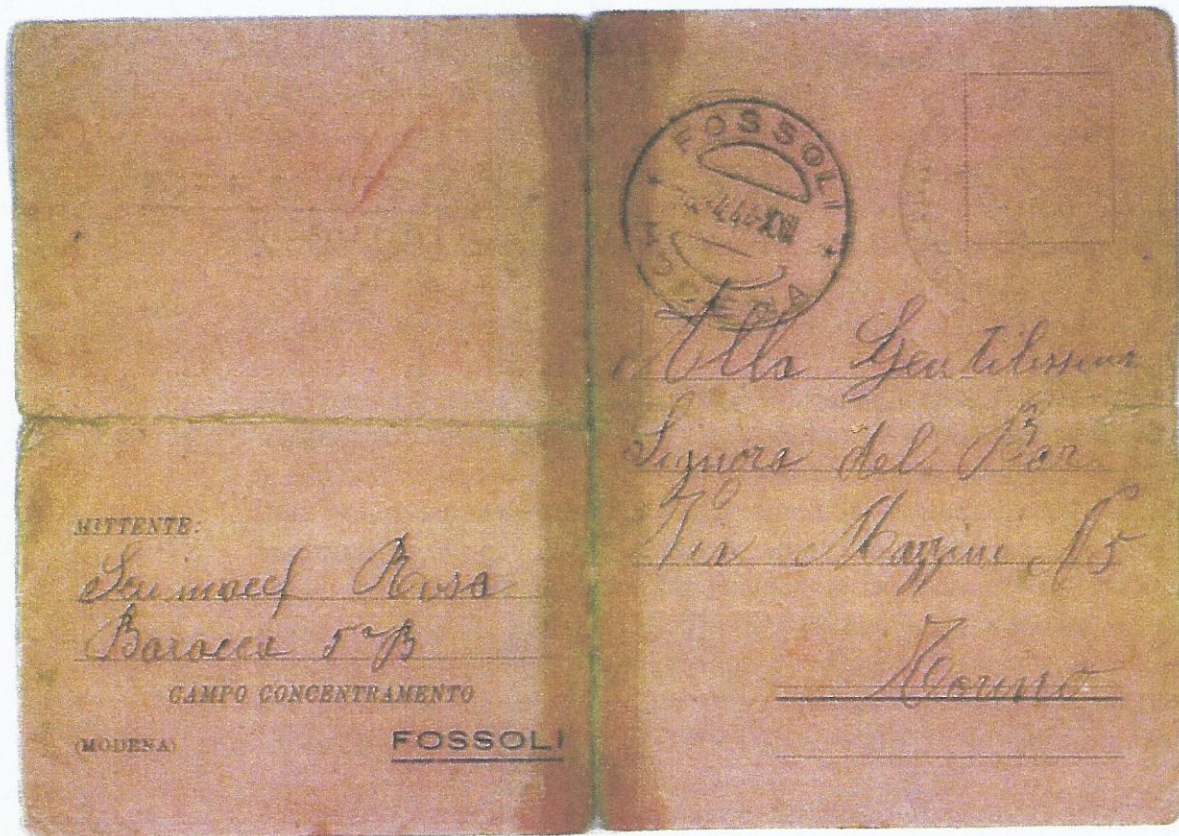 MITTENTE:
Rosa
Baracca 5ª B
CAMPO CONCENTRAMENTO
(MODENA) FOSSOLI
FOSSOLI
MODENA
Alla Gentilissima
Signora del Bar
Via Mazzini
Torino